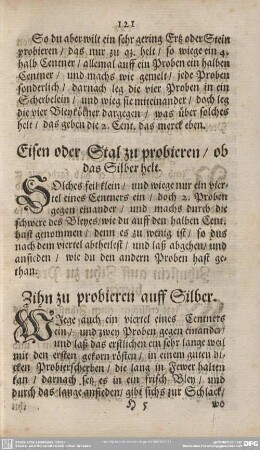 121
So du aber wilt ein sehr gering Ertz oder Stein
probieren / das nur zu 93. helt / so wiege ein 4.
halb Centner / allemal auff ein Proben ein halben
Centner / und machs wie gemelt / jede Proben
sonderlich / darnach leg die vier Proben in ein
Scherbelein / und wieg sie miteinander / doch leg
die vier Bleykölner dargegen / was über solches
helt / das geben die 2. Cent. das merck eben.
Eisen oder Stal zu probieren / ob
das Silber helt.
SOlches feil klein / und wiege nur ein vier-
tel eines Centners ein / doch 2. Proben
gegen einander / und machs durch die
schwere des Bleyes / wie du auff den halben Cent.
hast genommen / denn es zu wenig ist / so dus
nach dem viertel abtheilest / und laß abgehen / und
ansieden / wie du den andern Proben hast ge-
than.
Zihn zu probieren auff Silber.
WIege auch ein viertel eines Centners
ein / und zwey Proben gegen einander /
und laß das erstlichen ein sehr lange weil
mit den ersten gekorn rösten / in einem guten di-
cken Probierscherben / die lang in Fewer halten
kan / darnach setz es in ein frisch Bley / und
durch das lange ansieden / gibt sichs zur Schlack /
H 5 wo